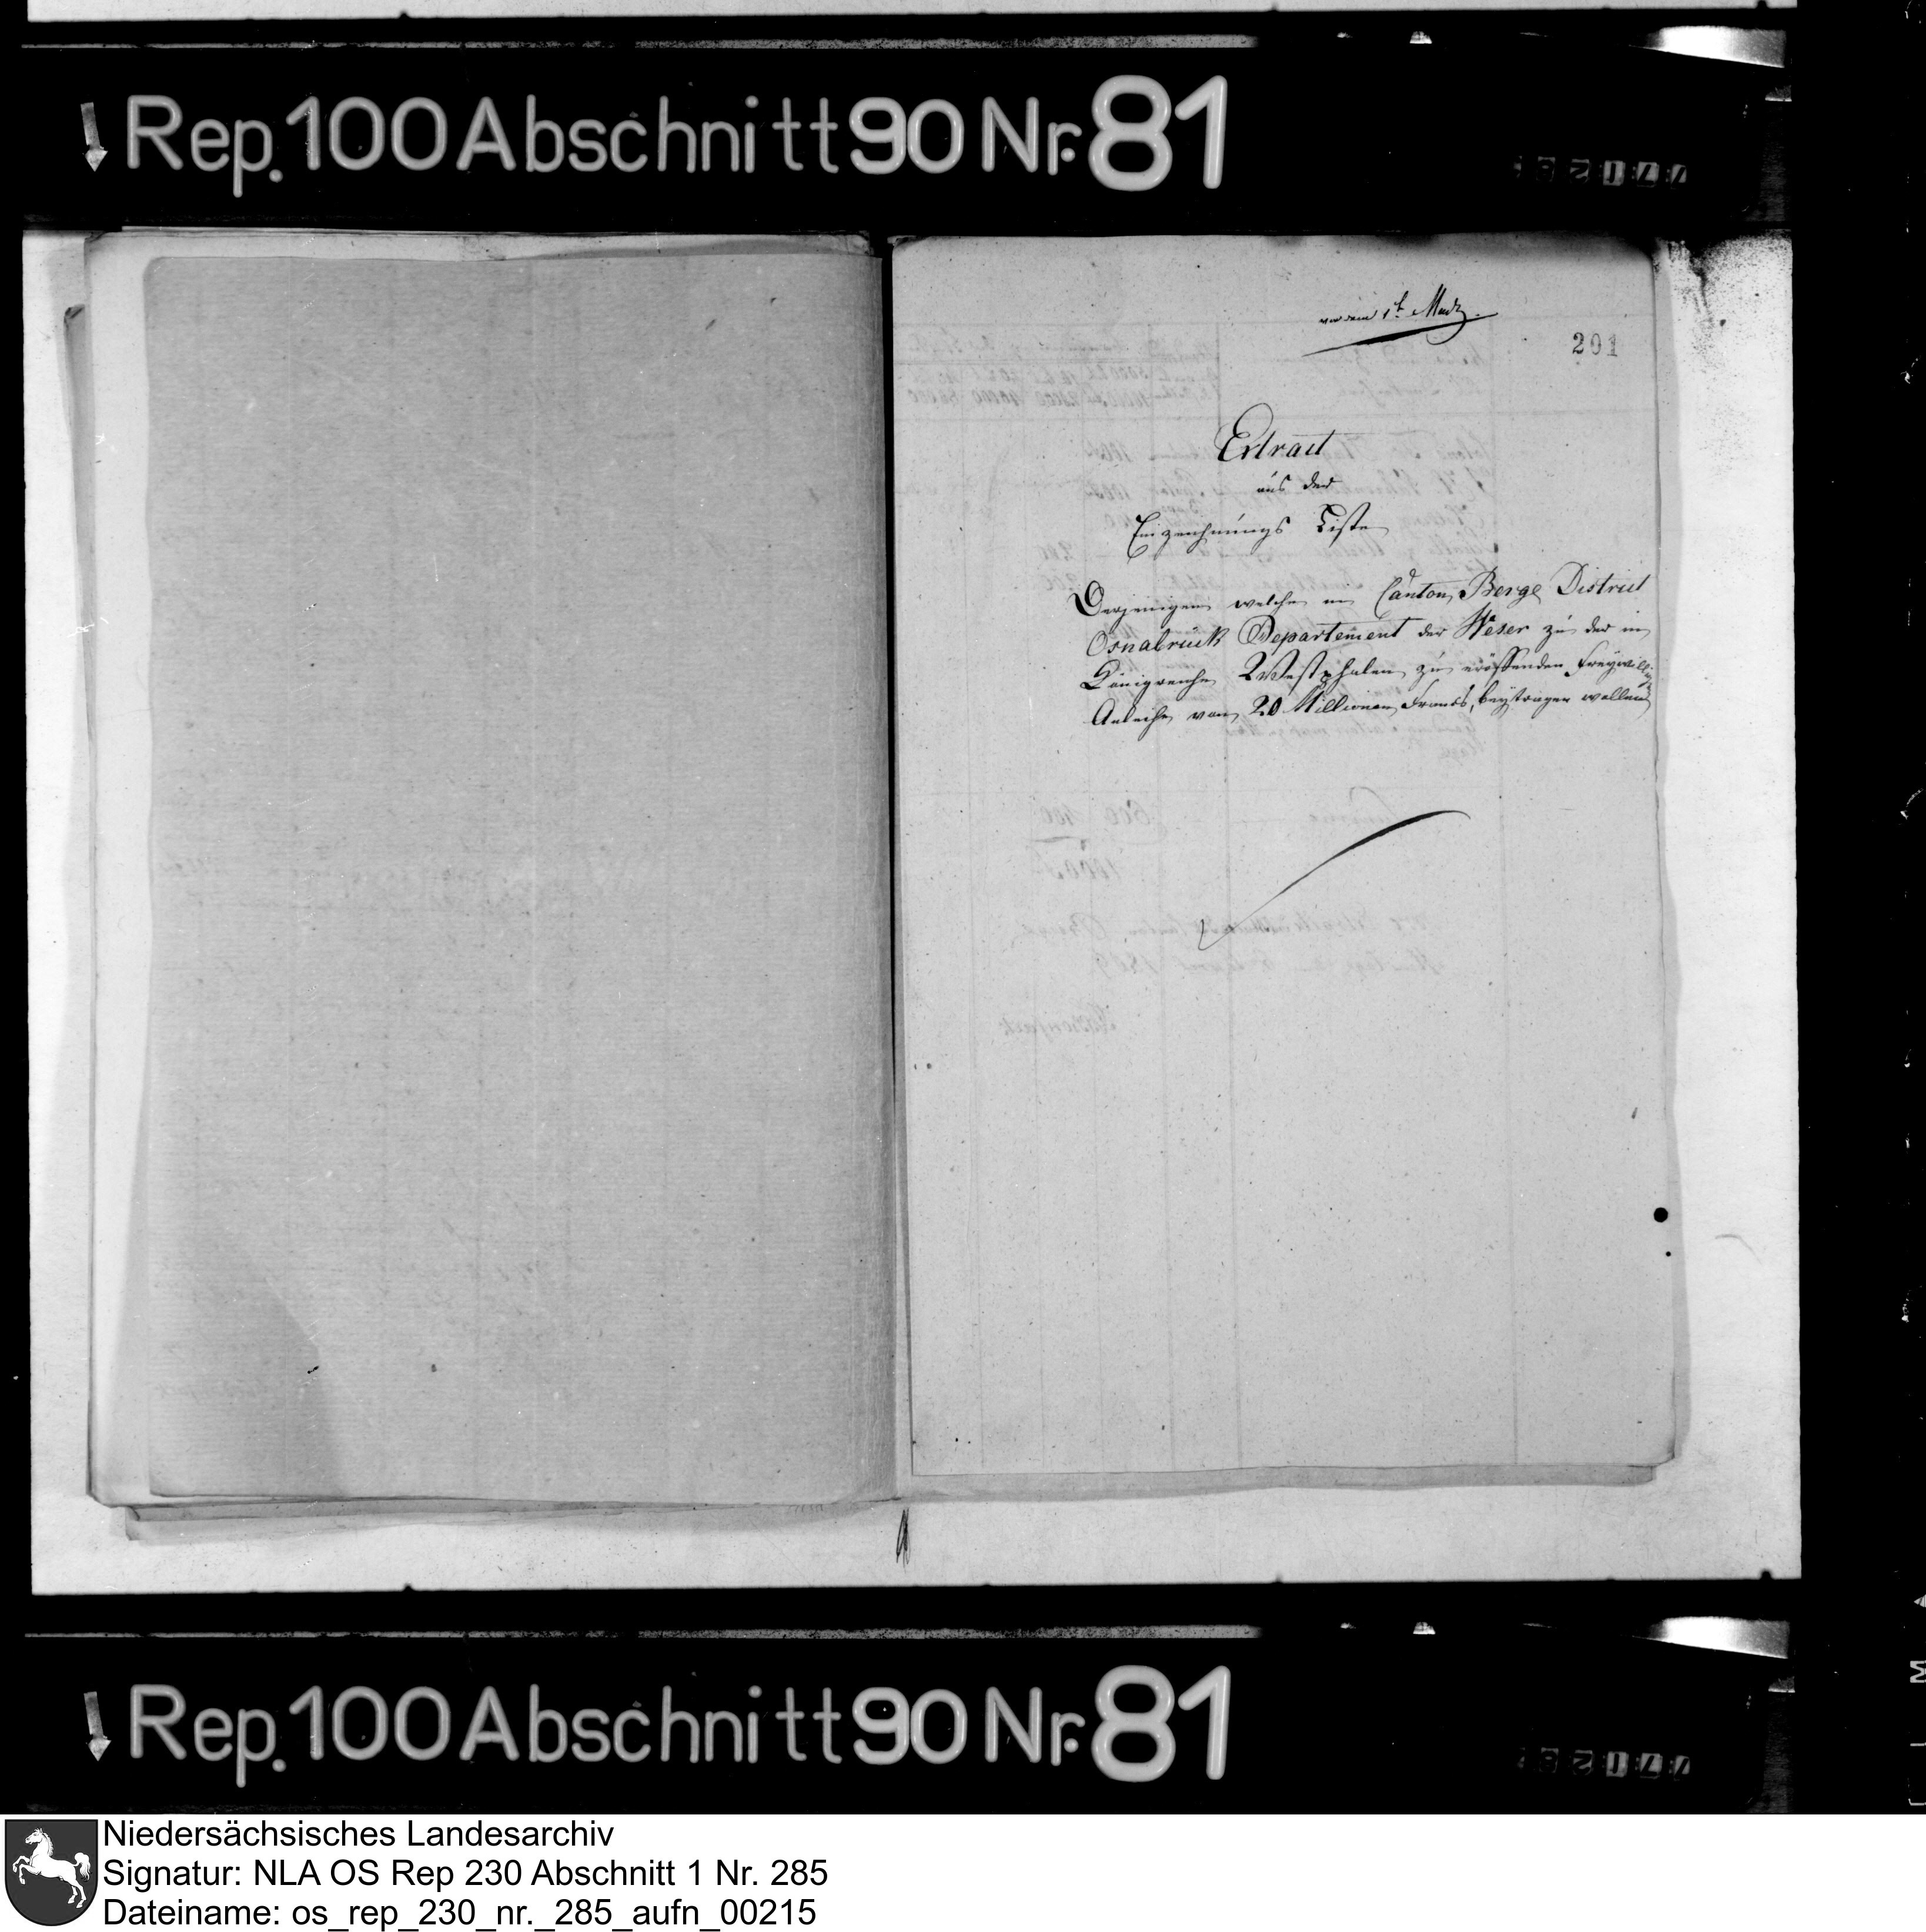 Rep. 100 Abschnitt 90 Nr. 81
vor dem 1t Märtz.
201
Extract
aus der
Einzeichnungs Liste
Derjenigen welche im Canton Berge District
Osnabrück Departement der Weser zu der im
Königreiche Westphalen zu eröffnenden freywillig
Anleihe von 20 Millionen Francs, beytragen wollen
Rep. 100 Abschnitt 90 Nr. 81
Niedersächsisches Landesarchiv
Signatur: NLA OS Rep 230 Abschnitt 1 Nr. 285
Dateiname: os_rep_230_nr._285_aufn_00215